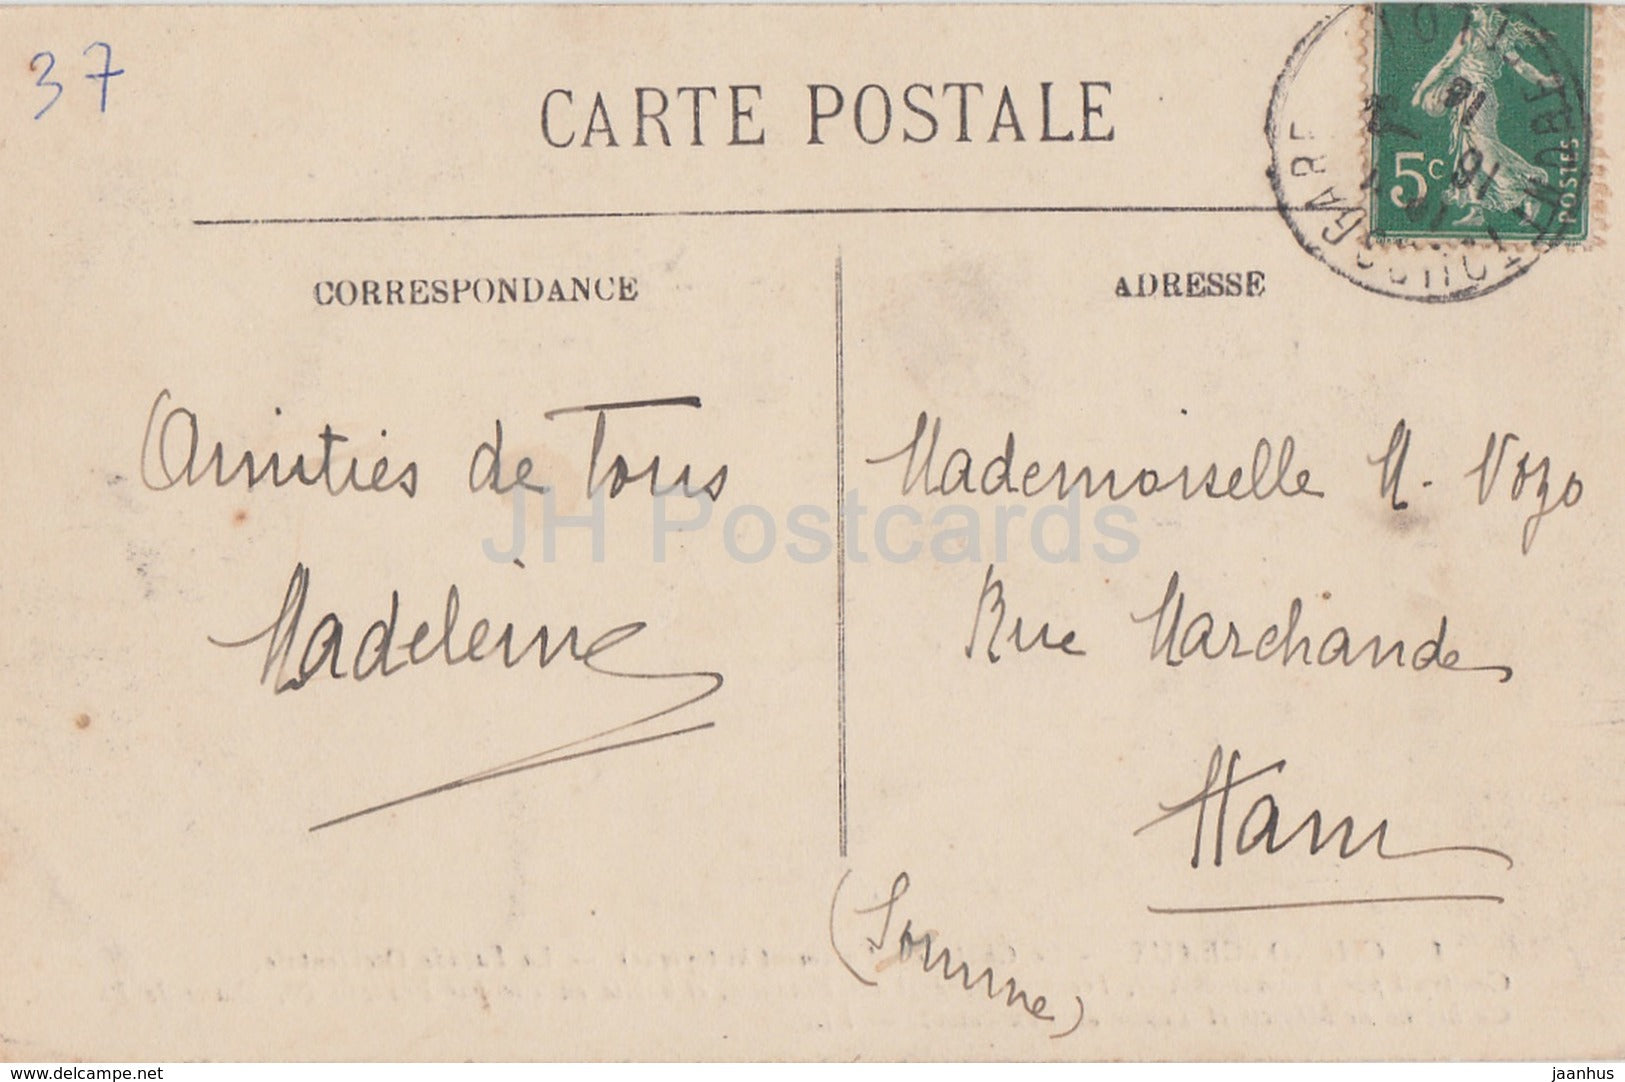 37
CARTE POSTALE
CORRESPONDANCE
ADRESSE
5c
POSTES
GARE
Amitiés de Tous
Madeleine
Mademoiselle M. Vozo
Rue Marchande
Ham
(Somme)
JH Postcards
www.delcampe.net
jaanhus